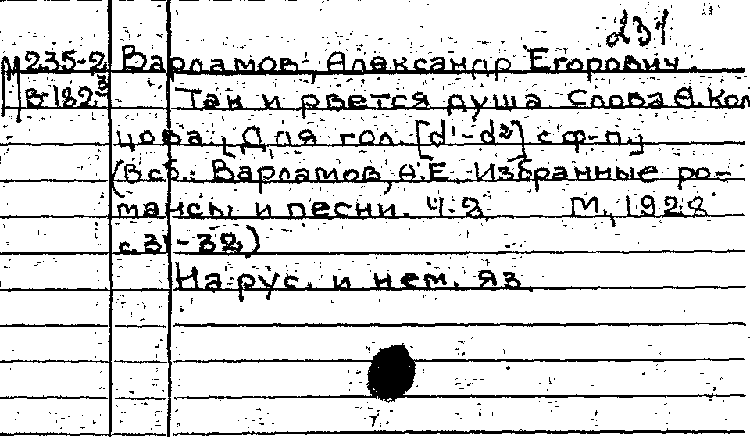 237
М235-2 Варламов, Александр Егорович.
В-182³ Так и рвется душа. Слова А. Коль
цова. [Для гол. [d¹-d²] с ф-п.]
(В сб.: Варламов, А.Е. Избранные ро-
мансы и песни. Ч.2 М., 1928
с.31-32)
На рус. и нем. яз.